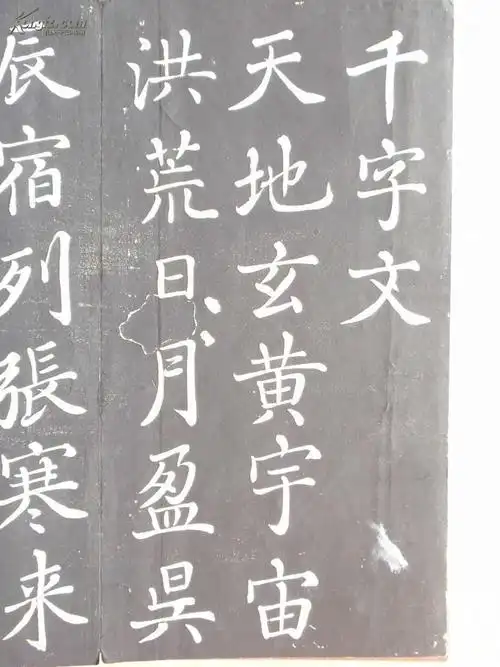 千字文
天地玄黄宇宙
洪荒日月盈昃
辰宿列張寒来